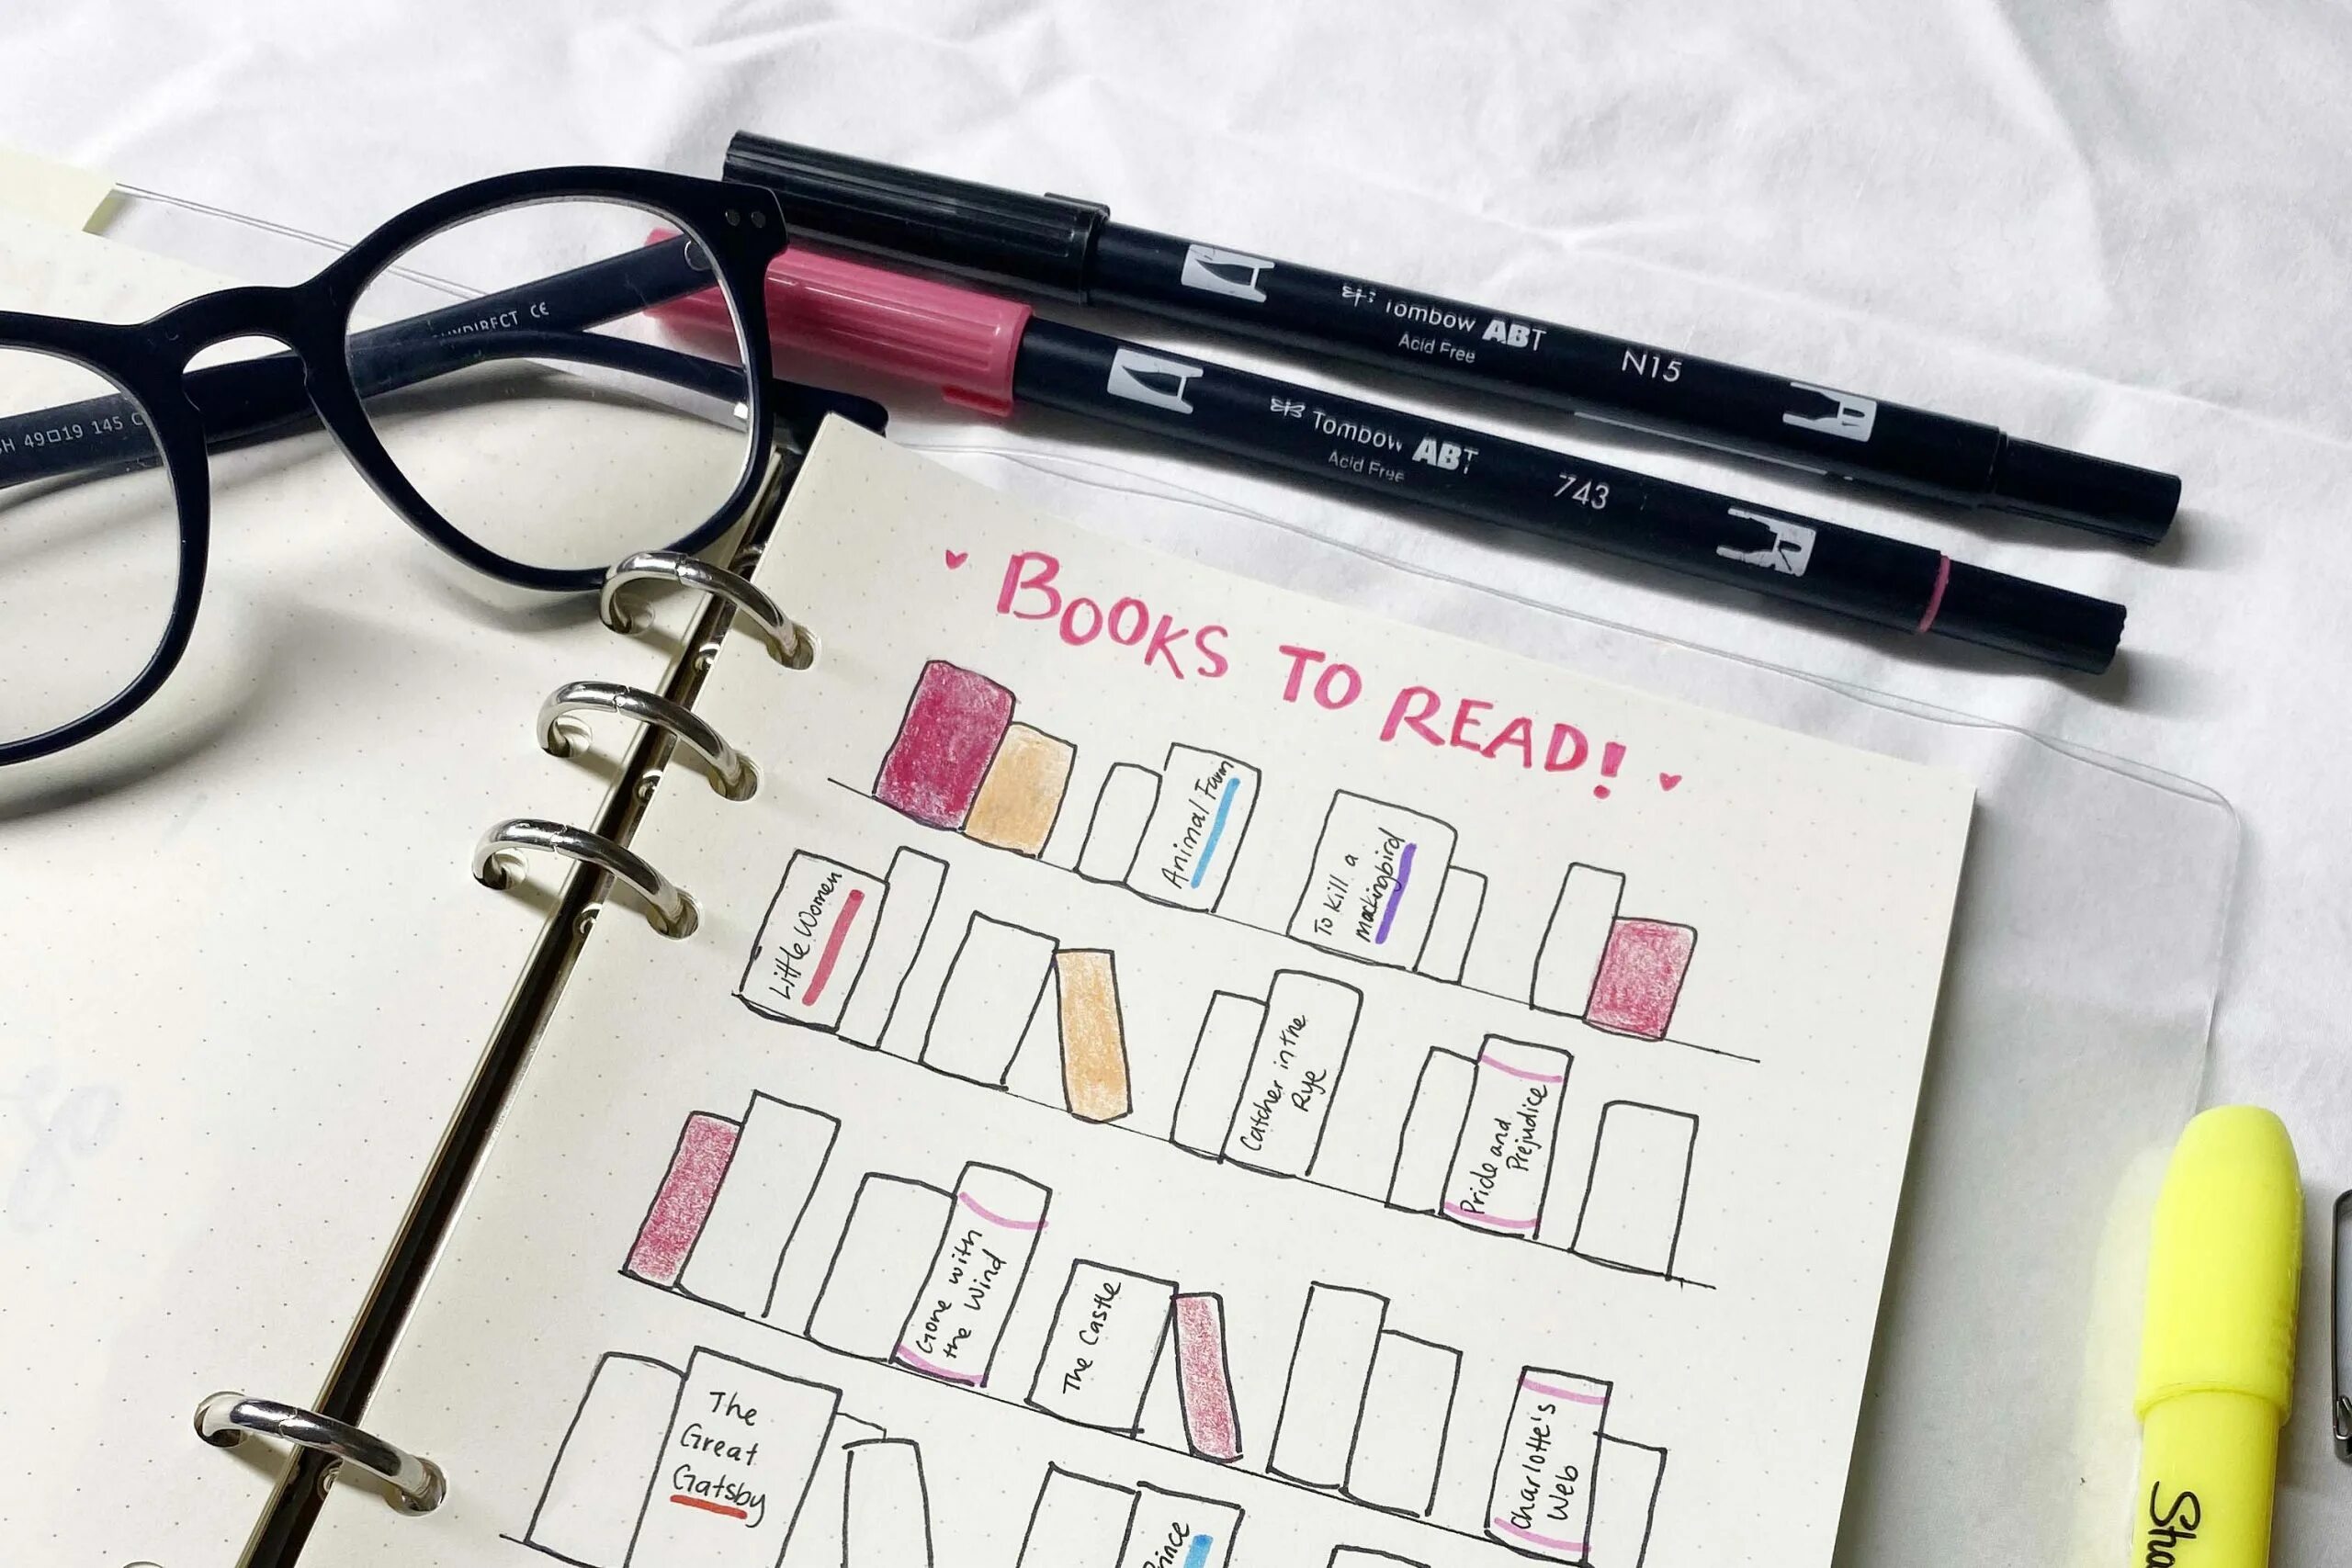 CE
H 49□19 145 C
Tombow ABT
Acid Free
N15
Tombow ABT
Acid Free
743
BOOKS TO READ!
Animal Farm
To Kill a
mockingbird
Little Women
Catcher in the
Rye
Pride and
Prejudice
Gone with
the Wind
The Castle
Charlotte's
Web
The
Great
Gatsby
Prince